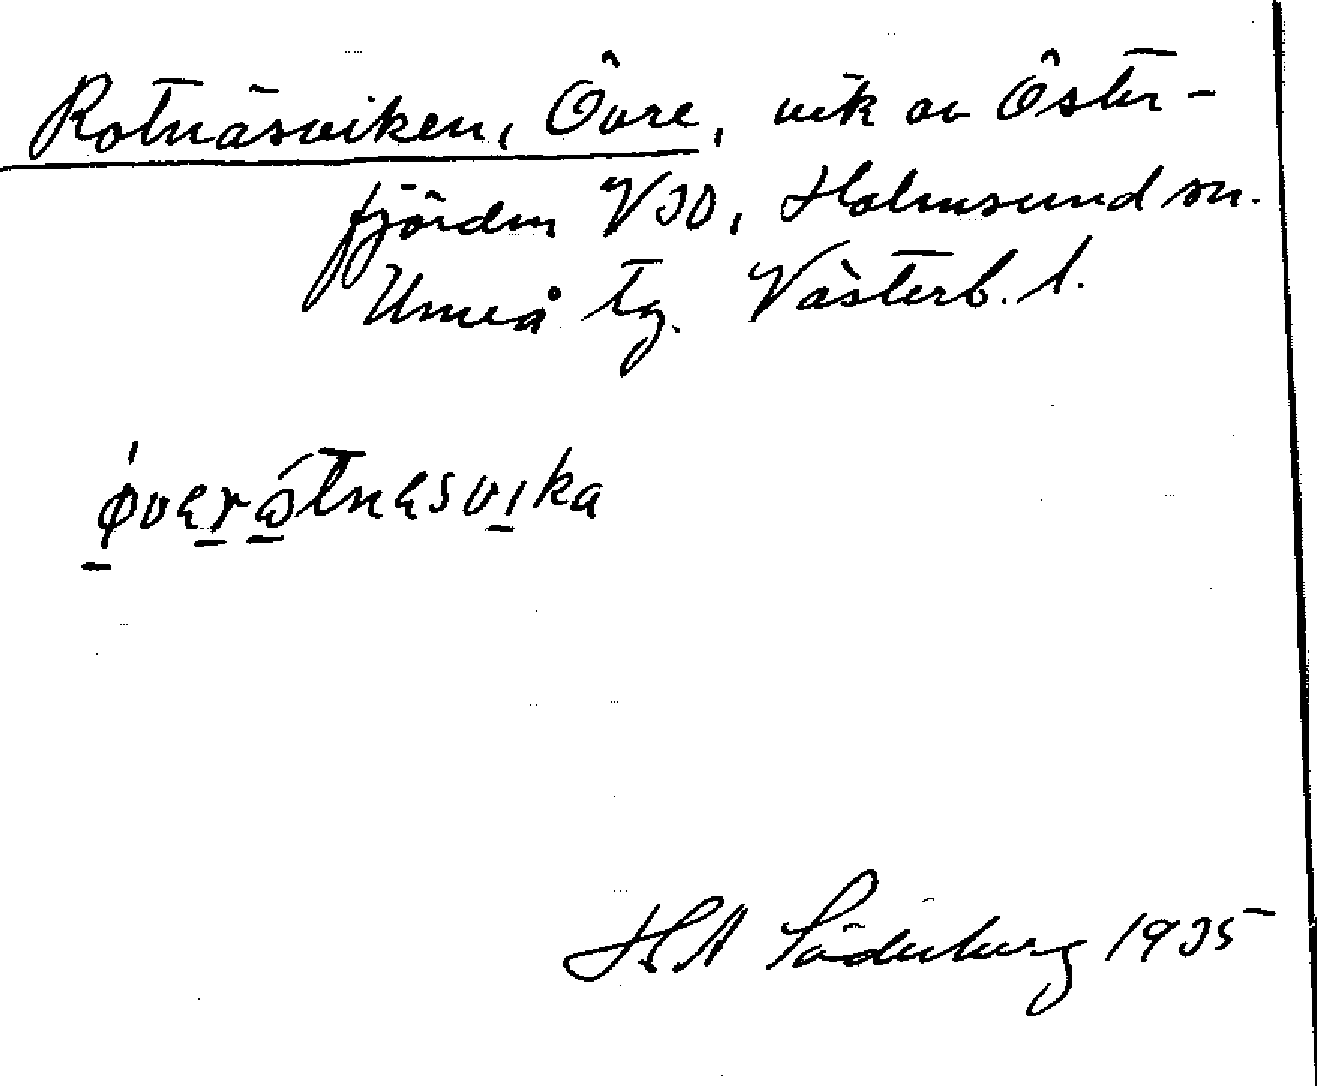 Rotnäsviken, Övre, vik av Öster-
fjärden VSO, Holmsund sn.
Umeå tg. Västerb. l.
H A Söderberg 1935